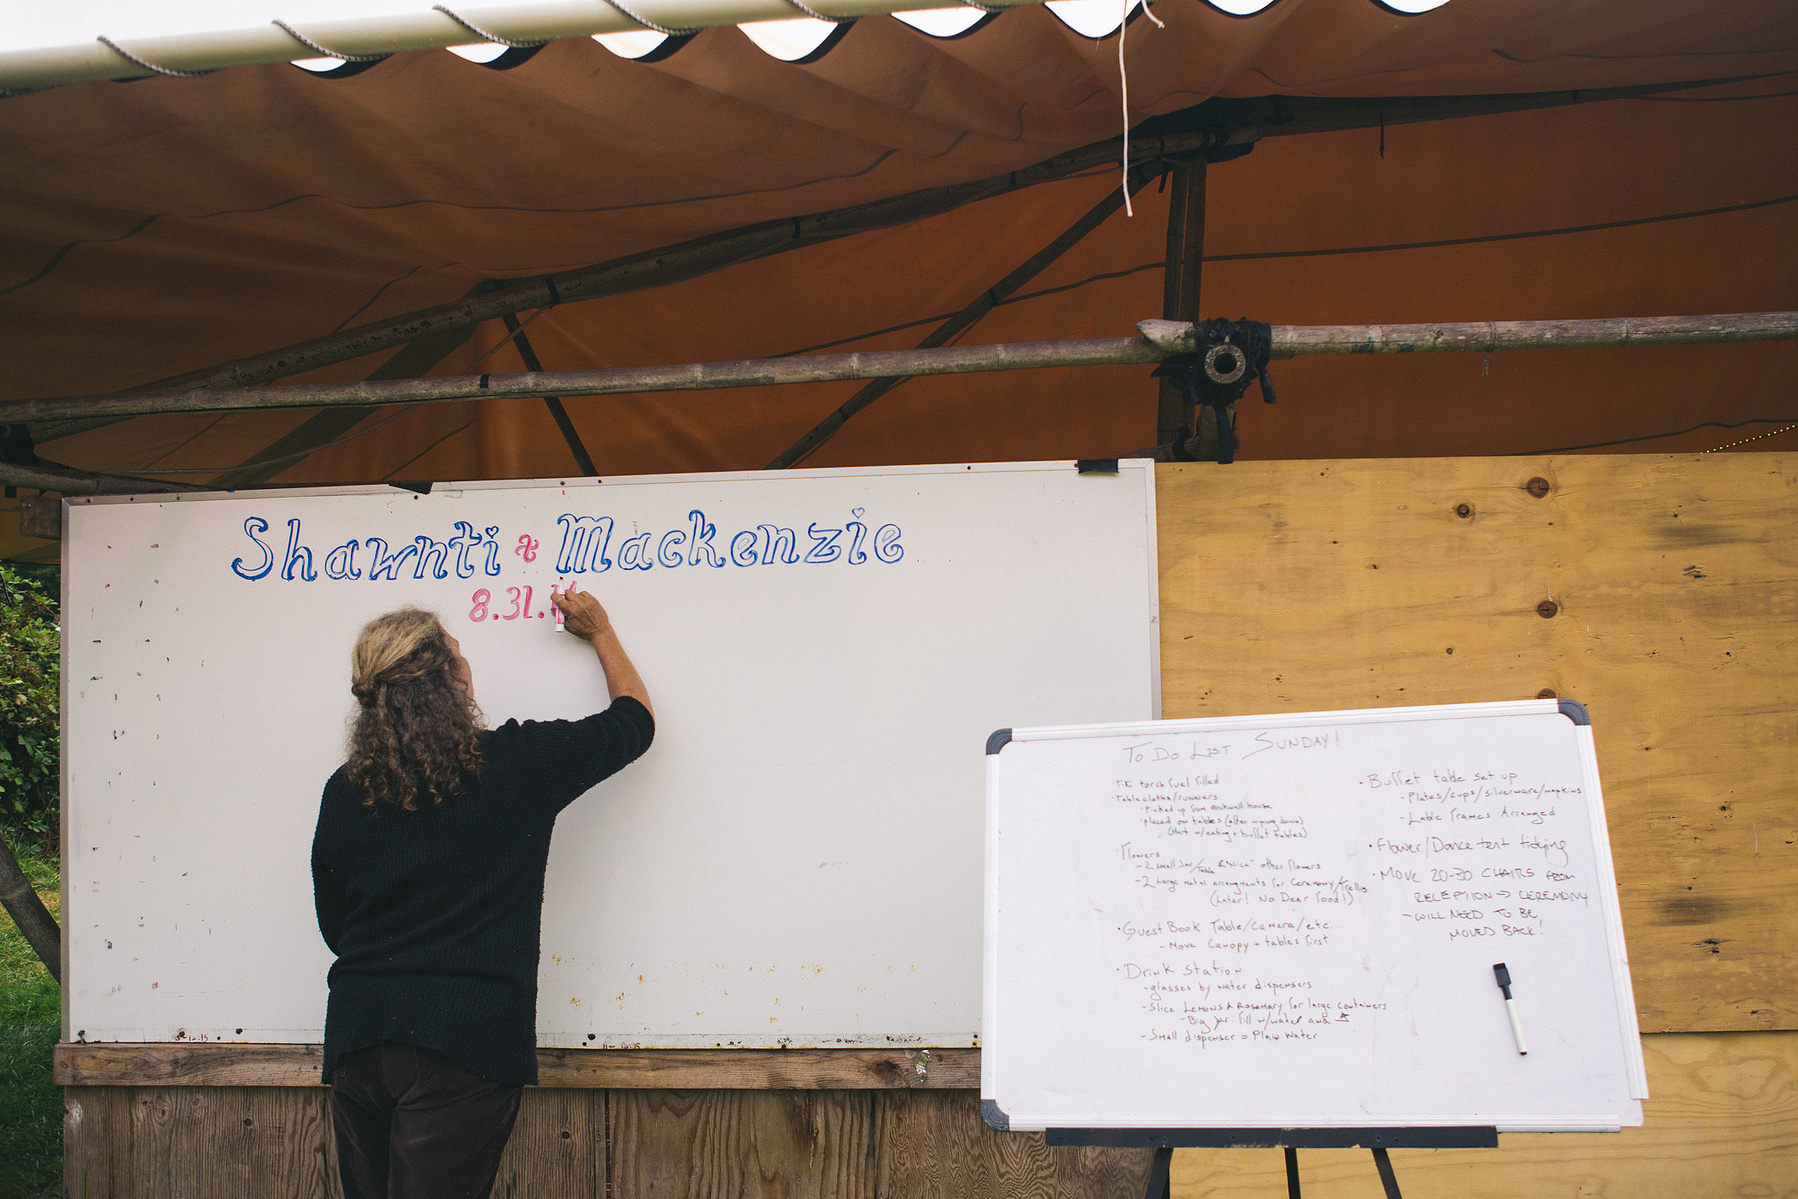 Shawnti & Mackenzie
8.31.
To Do List Sunday!
Tiki torch fuel filled
· Tablecloths/runners
- Picked up from Rockwell house
- Placed on tables (after wiping down)
(Start w/eating + buffet tables)
· Flowers
- 2 small jar/table & "Nice" other flowers
- 2 Large metal arrangments for Ceremony/Trellis
(Later! No Deer food!)
· Guest Book Table/Camera/etc...
- Move Canopy + tables first
· Drink Station
- glasses by water dispensers
- Slice Lemons & Rosemary for large containers
- Big jar: fill w/water and
- Small dispenser = Plain Water
· Buffet table set up
- Plates/cups/silverware/napkins
- Lable Frames Arranged
· Flower/Dance tent tidying
· MOVE 20-30 CHAIRS FROM
RECEPTION → CEREMONY
- WILL NEED TO BE
MOVED BACK!